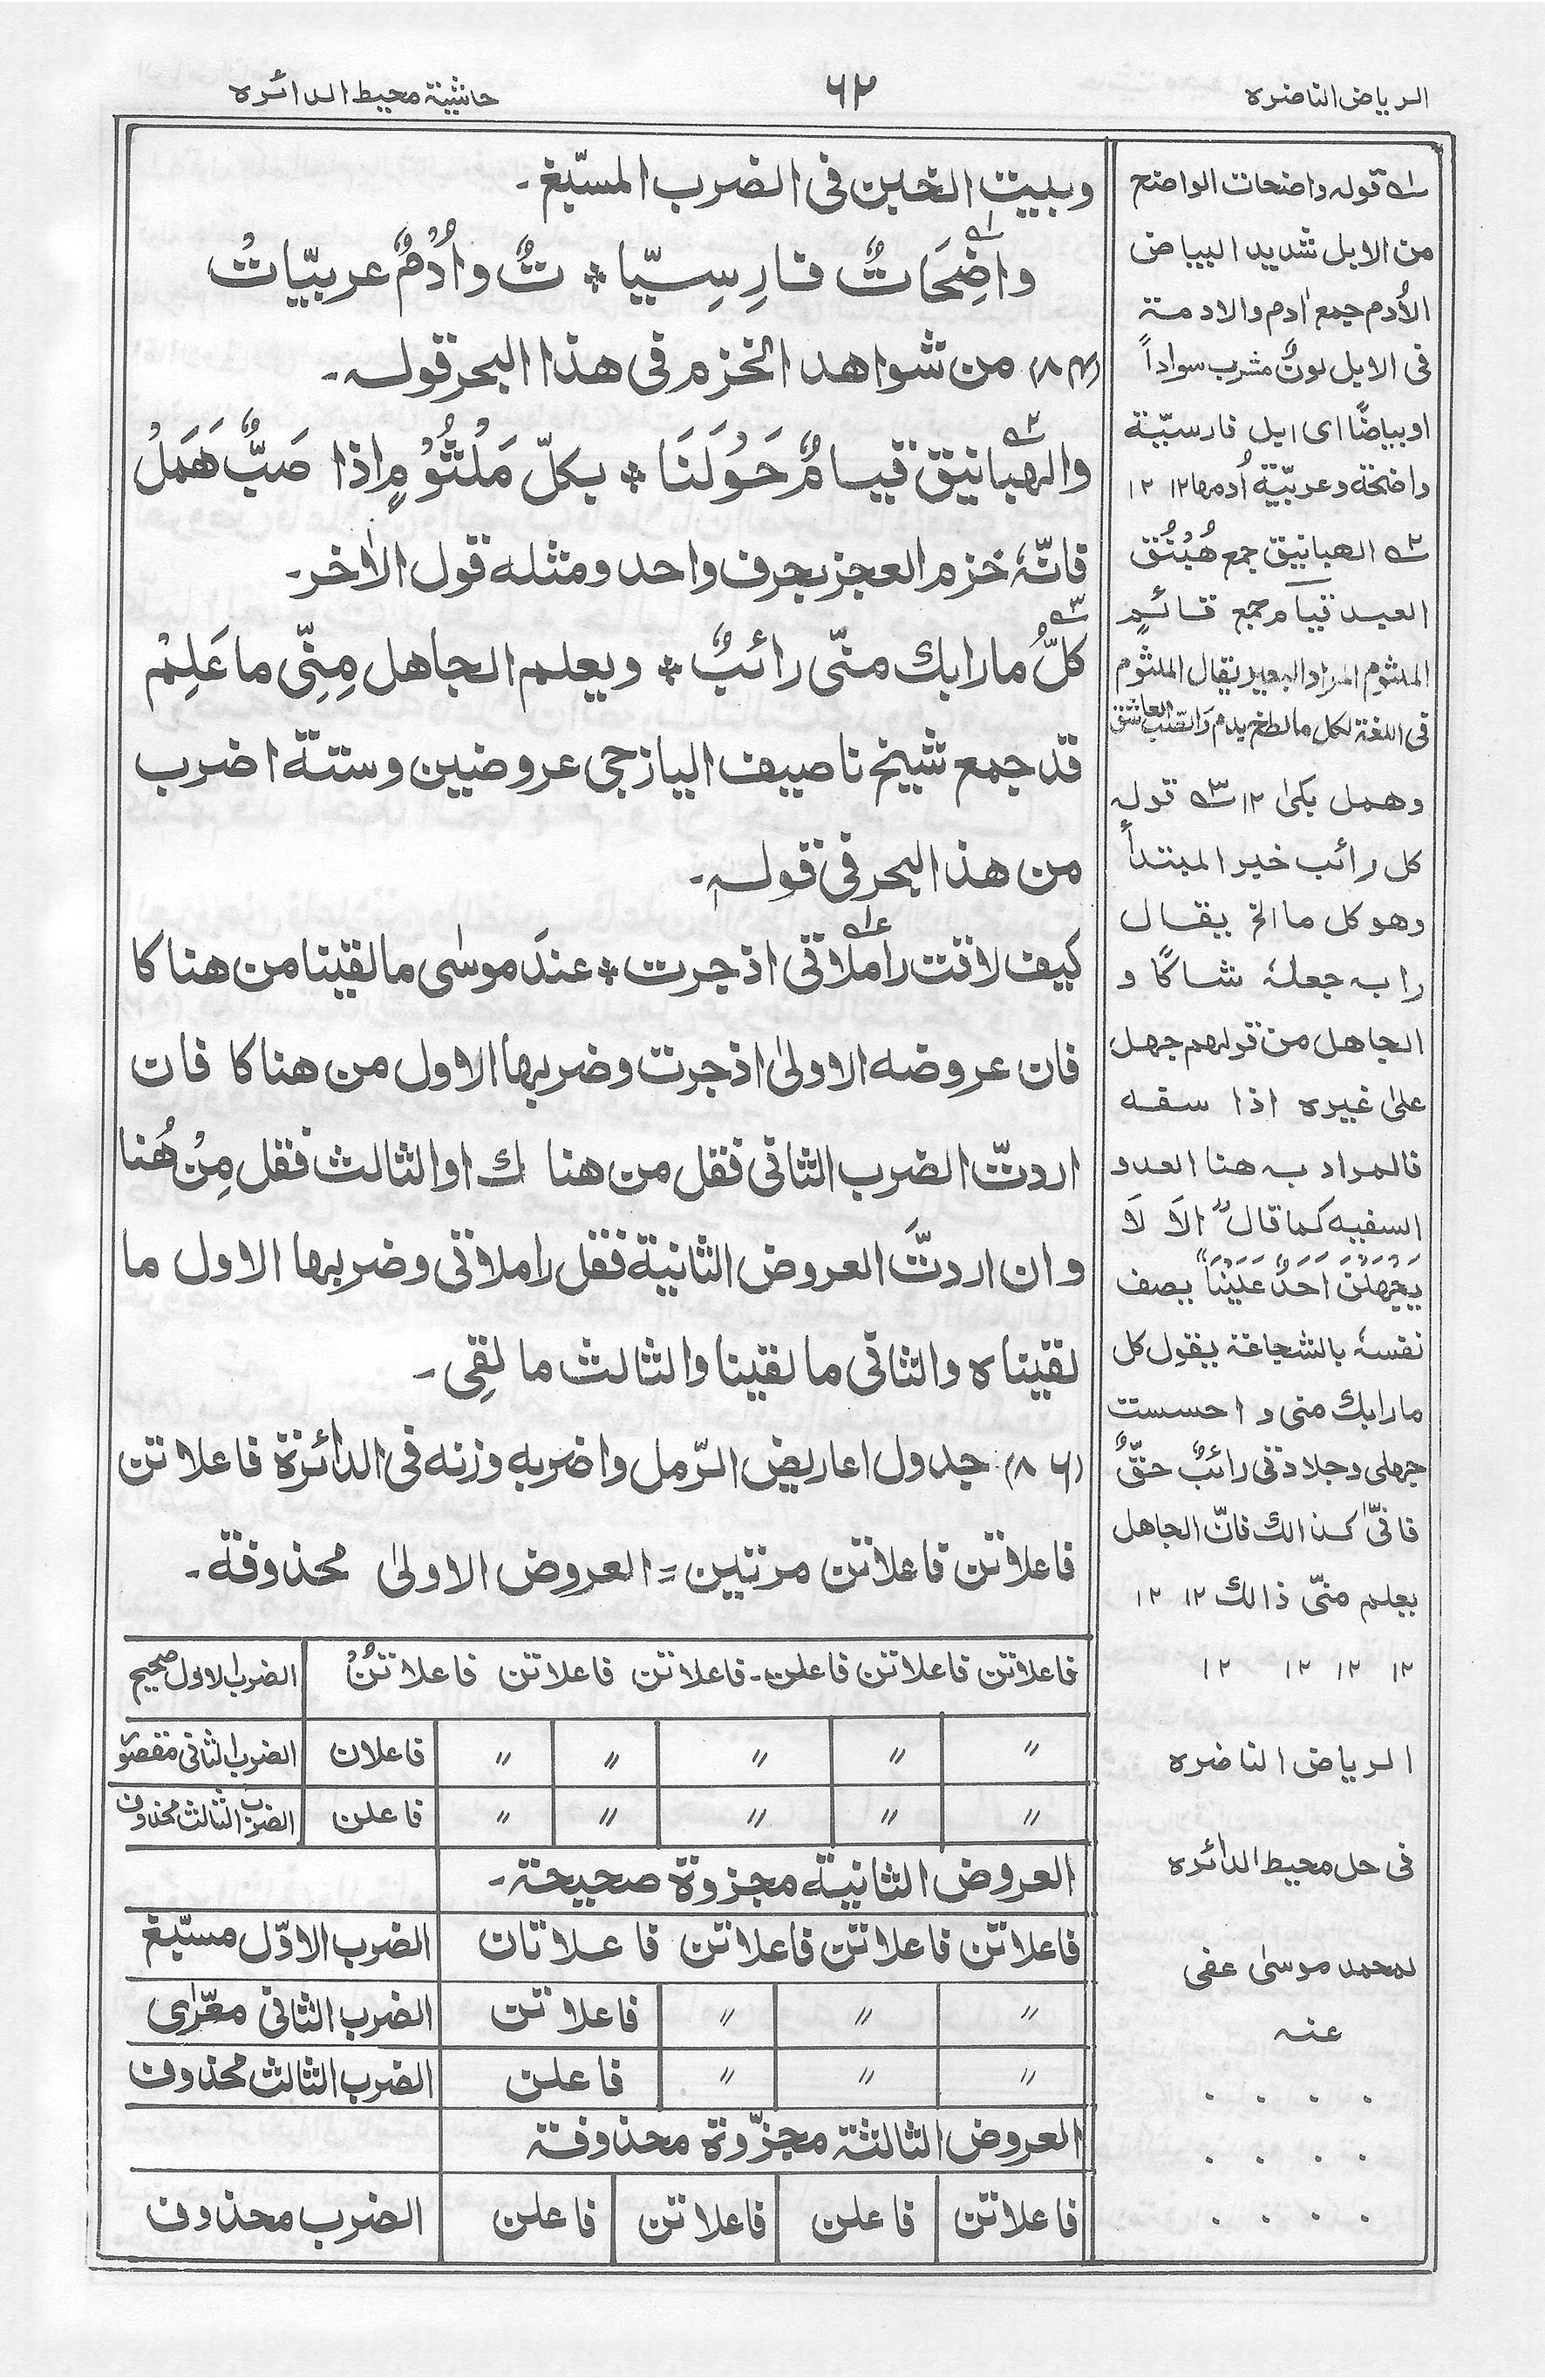 الریاض الناضرہ
۶۲
حاشیۃ محیط الدائرہ
وبیت الخبن فی الضرب المسبّغ۔
واضِحَاتٌ فارِسِیّا * تٌ واُدْمٌ عربیّاتْ
(۸۴) من شواهد الخزم فی هذا البحر قولہ۔
والهبانیق قیامٌ حَوْلَنَا * بکلّ مَلْثُوْمٍ اذا صَبٌّ هَمَلْ
فانّہٗ خزم العجز بحرف واحد ومثلہ قول الاٰخر۔
کلُّ ما رابك منّی رائبٌ * ویعلم الجاهل مِنِّی ما عَلِمْ
قد جمع شیخ ناصیف الیازجی عروضین وستۃ اضرب
من هذا البحر فی قولہ۔
کیف لاقت راملاتی اذ جرت * عندَ موسٰی ما لقینا من هناکا
فان عروضہ الاولیٰ اذ جرت وضربها الاول من هناکا فان
اردتّ الضرب الثانی فقل من هنا ك او الثالث فقل مِنْ هُنا
وان اردتَّ العروض الثانیۃ فقل راملاتی وضربها الاول ما
لقیناه والثانی ما لقینا والثالث ما لقِی۔
(۸۶) جدول اعاریض الرّمل واضربہ وزنہ فی الدائرۃ فاعلاتن
فاعلاتن فاعلاتن مرتین = العروض الاولیٰ محذوفۃ۔
فاعلاتن فاعلاتن فاعلن۔ فاعلاتن فاعلاتن فاعلاتنْ الضرب الاول صحیح
〃 〃 〃 〃 〃 فاعلان الضرب الثانی مقصور
〃 〃 〃 〃 〃 فاعلن الضرب الثالث محذوف
العروض الثانیۃ مجزوۃ صحیحۃ۔
فاعلاتن فاعلاتن فاعلاتن فاعلاتان الضرب الاوّل مسبّغ
〃 〃 〃 فاعلاتن الضرب الثانی معرّی
〃 〃 〃 فاعلن الضرب الثالث محذوف
العروض الثالثۃ مجزّوۃ محذوفۃ
فاعلاتن فاعلن فاعلاتن فاعلن الضرب محذوف
۱ قولہ واضحات الواضح
من الابل شدید البیاض
الأدم جمع اٰدم والادمۃ
فی الابل لونٌ مشرب سواداً
او بیاضًا ای ابل فارسیّۃ
واضحۃ وعربیّۃ اُدمها ۱۲ ۱۲
۲ الهبانیق جمع هُبْنُق
العبد قیام جمع قائم
الملثوم المراد البعیر یقال الملثوم
فی اللغۃ لکل ما لطخ بدم والصب العاشق
وهمل بکیٰ ۱۲ ۳ قولہ
کل رائب خبر المبتدأ
وهو کل ما الخ یقال
رابہ جعلہٗ شاکًا و
الجاهل من قولهم جهل
علیٰ غیرہ اذا سفہ
فالمراد بہ هنا العدو
السفیہ کما قال " الَا لَا
یَجْهَلَنْ اَحَدٌ عَلَیْنَا " یصف
نفسہٗ بالشجاعۃ یقول کل
ما رابك منی و احسست
جهلی وجلادتی رائبٌ حقٌّ
فانیّ کذالك فانّ الجاهل
یعلم منّی ذالك ۱۲ ۱۲
۱۲ ۱۲ ۱۲ ۱۲
الریاض الناضرہ
فی حل محیط الدائرہ
لمحمد موسیٰ عفی
عنہ